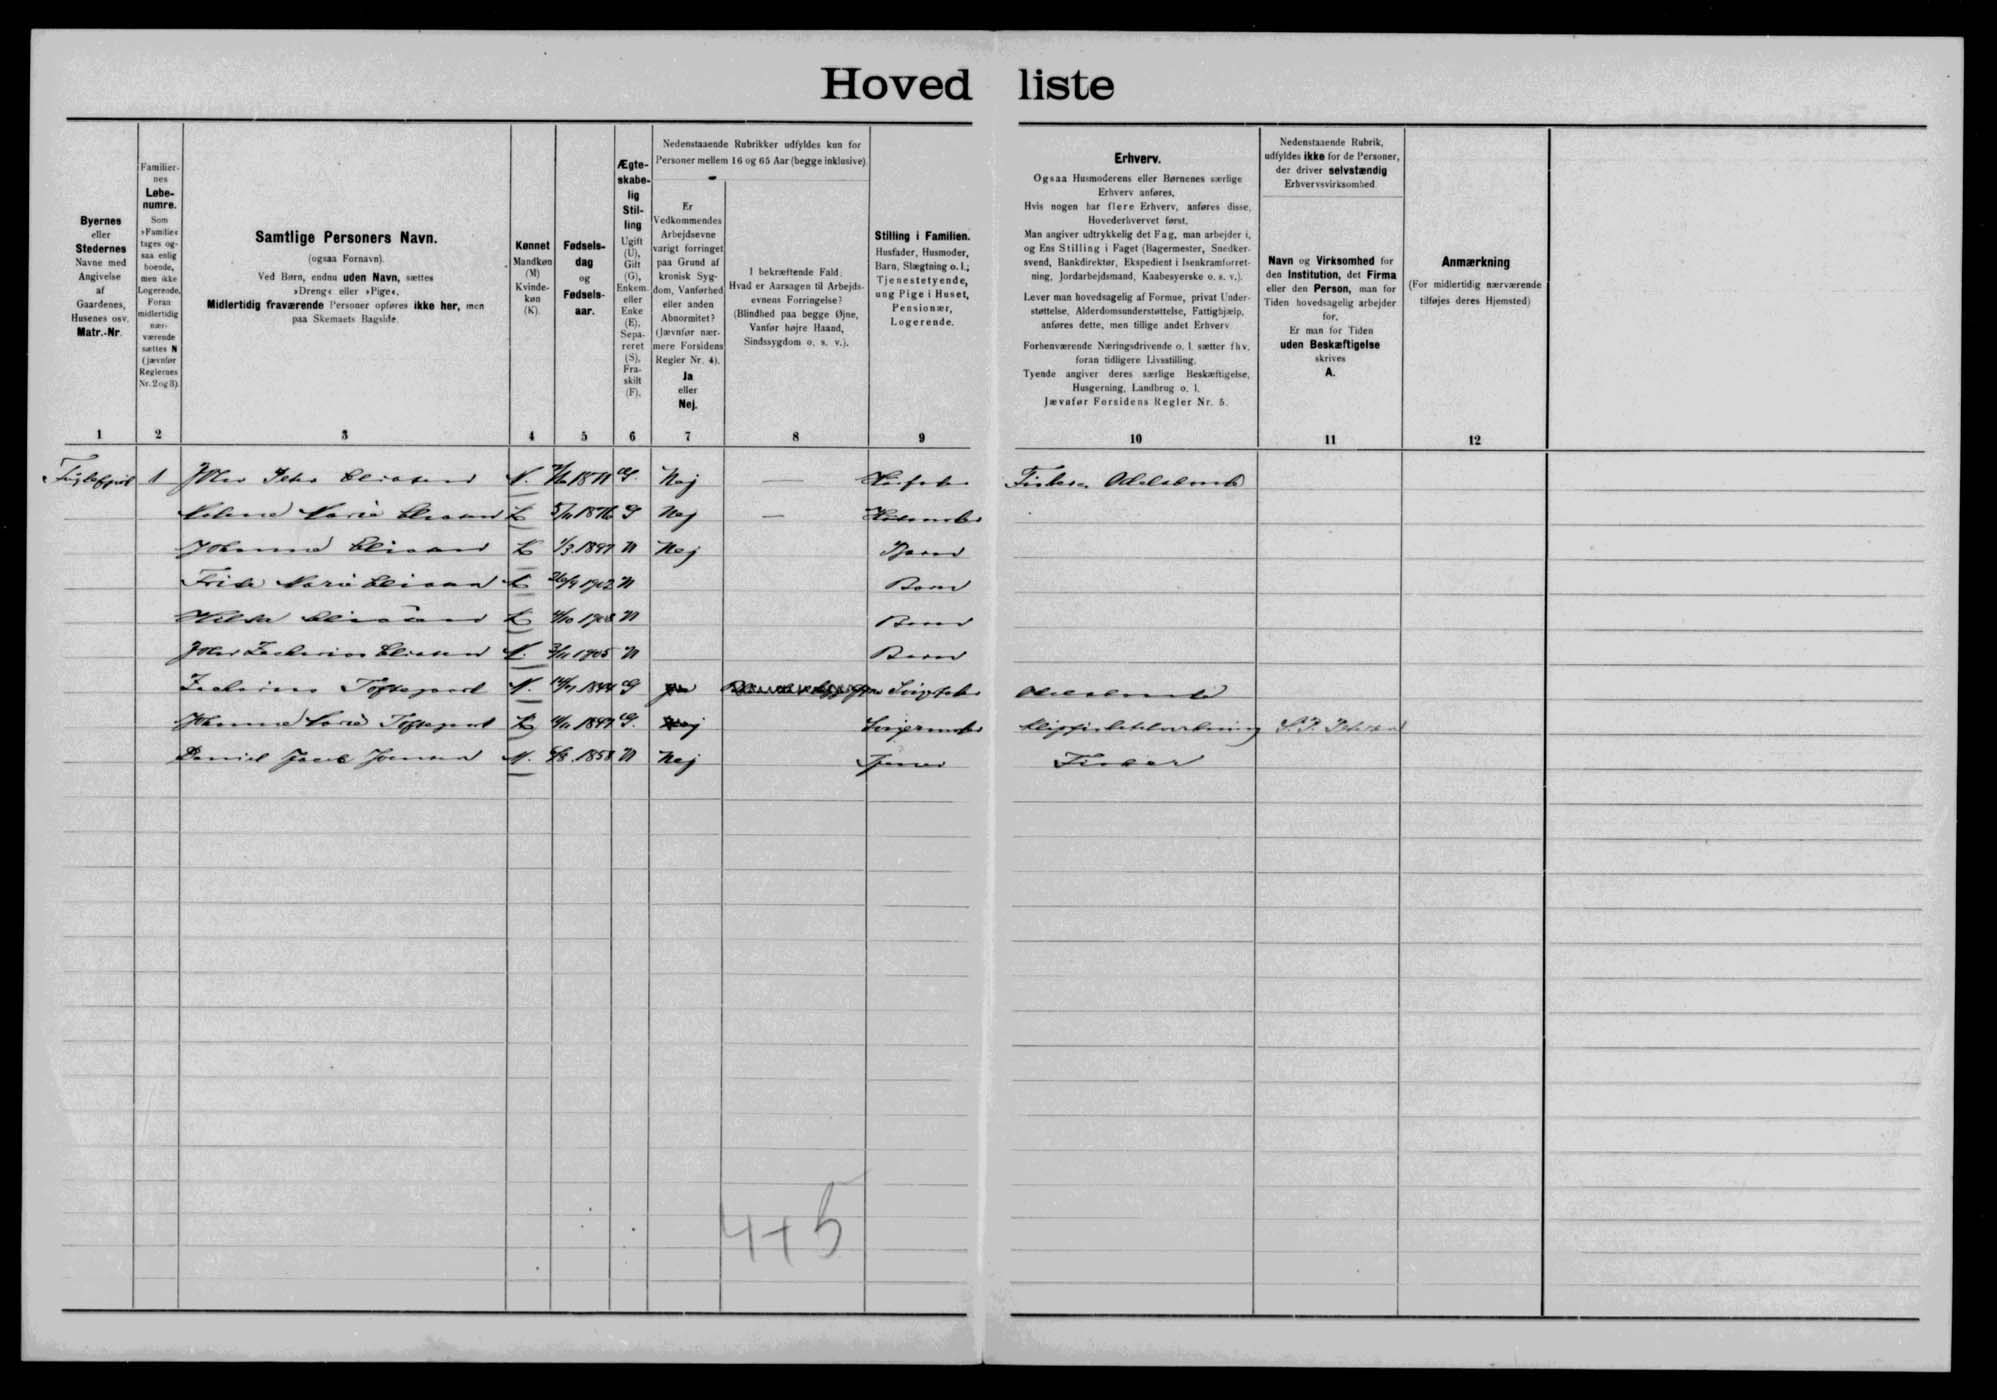 Hovedliste
Byernes
eller
Stedernes
Navne med
Angivelse
af
Gaardenes,
Husenes osv.
Matr.-Nr.
Familier-
nes
Løbe-
numre.
Som
»Familie«
tages og-
saa enlig
boende,
men ikke
Logerende.
Foran
midlertidig
nær-
værende
sættes N
(jævnfør
Reglernes
Nr. 2 og 3).
Samtlige Personers Navn.
(ogsaa Fornavn).
Ved Børn, endnu uden Navn, sættes
»Dreng« eller »Pige«.
Midlertidig fraværende Personer opføres ikke her, men
paa Skemaets Bagside.
Kønnet
Mandkøn
(M)
Kvinde-
køn
(K).
Fødsels-
dag
og
Fødsels-
aar.
Ægte-
skabe-
lig
Stil-
ling
Ugift
(U),
Gift
(G),
Enkem.
eller
Enke
(E),
Sepa-
reret
(S),
Fra-
skilt
(F).
Nedenstaaende Rubrikker udfyldes kun for
Personer mellem 16 og 65 Aar (begge inklusive).
Er
Vedkommendes
Arbejdsevne
varigt forringet
paa Grund af
kronisk Syg-
dom, Vanførhed
eller anden
Abnormitet?
(Jævnfør nær-
mere Forsidens
Regler Nr. 4).
Ja
eller
Nej.
I bekræftende Fald:
Hvad er Aarsagen til Arbejds-
evnens Forringelse?
(Blindhed paa begge Øjne,
Vanfør højre Haand,
Sindssygdom o. s. v.).
Stilling i Familien.
Husfader, Husmoder,
Barn, Slægtning o. l.;
Tjenestetyende,
ung Pige i Huset,
Pensionær,
Logerende.
Erhverv.
Ogsaa Husmoderens eller Børnenes særlige
Erhverv anføres.
Hvis nogen har flere Erhverv, anføres disse,
Hovederhvervet først.
Man angiver udtrykkelig det Fag, man arbejder i,
og Ens Stilling i Faget (Bagermester, Snedker-
svend, Bankdirektør, Ekspedient i Isenkramforret-
ning, Jordarbejdsmand, Kaabesyerske o. s. v.).
Lever man hovedsagelig af Formue, privat Under-
støttelse, Alderdomsunderstøttelse, Fattighjælp,
anføres dette, men tillige andet Erhverv
Forhenværende Næringsdrivende o. l. sætter fhv.
foran tidligere Livsstilling.
Tyende angiver deres særlige Beskæftigelse,
Husgerning, Landbrug o. l.
Jævnfør Forsidens Regler Nr. 5.
Nedenstaaende Rubrik,
udfyldes ikke for de Personer,
der driver selvstændig
Erhvervsvirksomhed
Navn og Virksomhed for
den Institution, det Firma
eller den Person, man for
Tiden hovedsagelig arbejder
for.
Er man for Tiden
uden Beskæftigelse
skrives
A.
Anmærkning
(For midlertidig nærværende
tilføjes deres Hjemsted)
1 2 3 4 5 6 7 8 9 10 11 12
Fuglefjord 1 Peter Eliasen M. 1871 G. Nej — Husfader Fisker
Marie Eliasen K 1876 G Nej — Husmoder
Johanne Eliasen K 1/3 1897 U Nej Barn
Frida Marie Eliasen K 1902 U Barn
Hilda Eliasen K U Barn
Zacharias Eliasen M. 1905 U Barn
Zacharias Toftegaard M. 1844 G
Johanne Marie Toftegaard K 1847 G. Svigermoder
Daniel Jacob Joensen M. 1858 U Nej Tjener Fisker
4+5